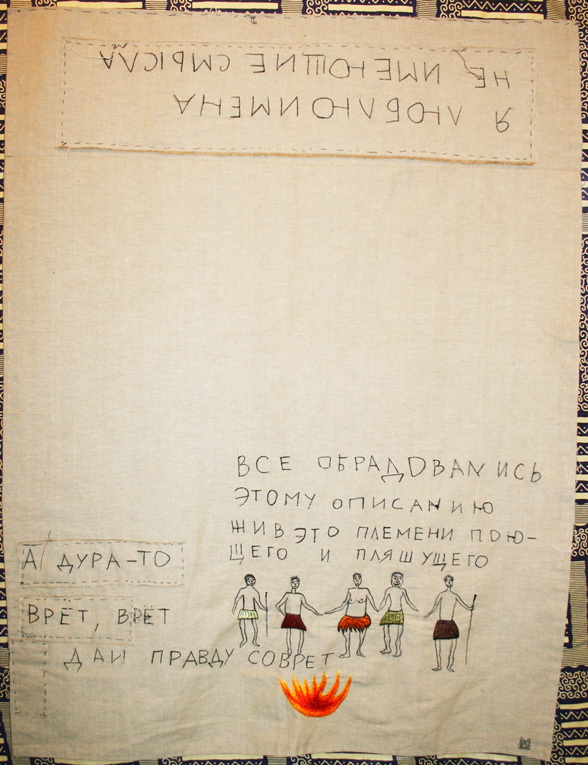 Я ЛЮБЛЮ ИМЕНА
НЕ ИМЕЮЩИЕ СМЫСЛА
ВСЕ ОБРАДОВАЛИСЬ
ЭТОМУ ОПИСАНИЮ
ЖИВ ЭТО ПЛЕМЕНИ ПОЮ-
ЩЕГО И ПЛЯШУЩЕГО
А ДУРА-ТО
ВРЕТ, ВРЕТ
ДАИ ПРАВДУ СОВРЕТ